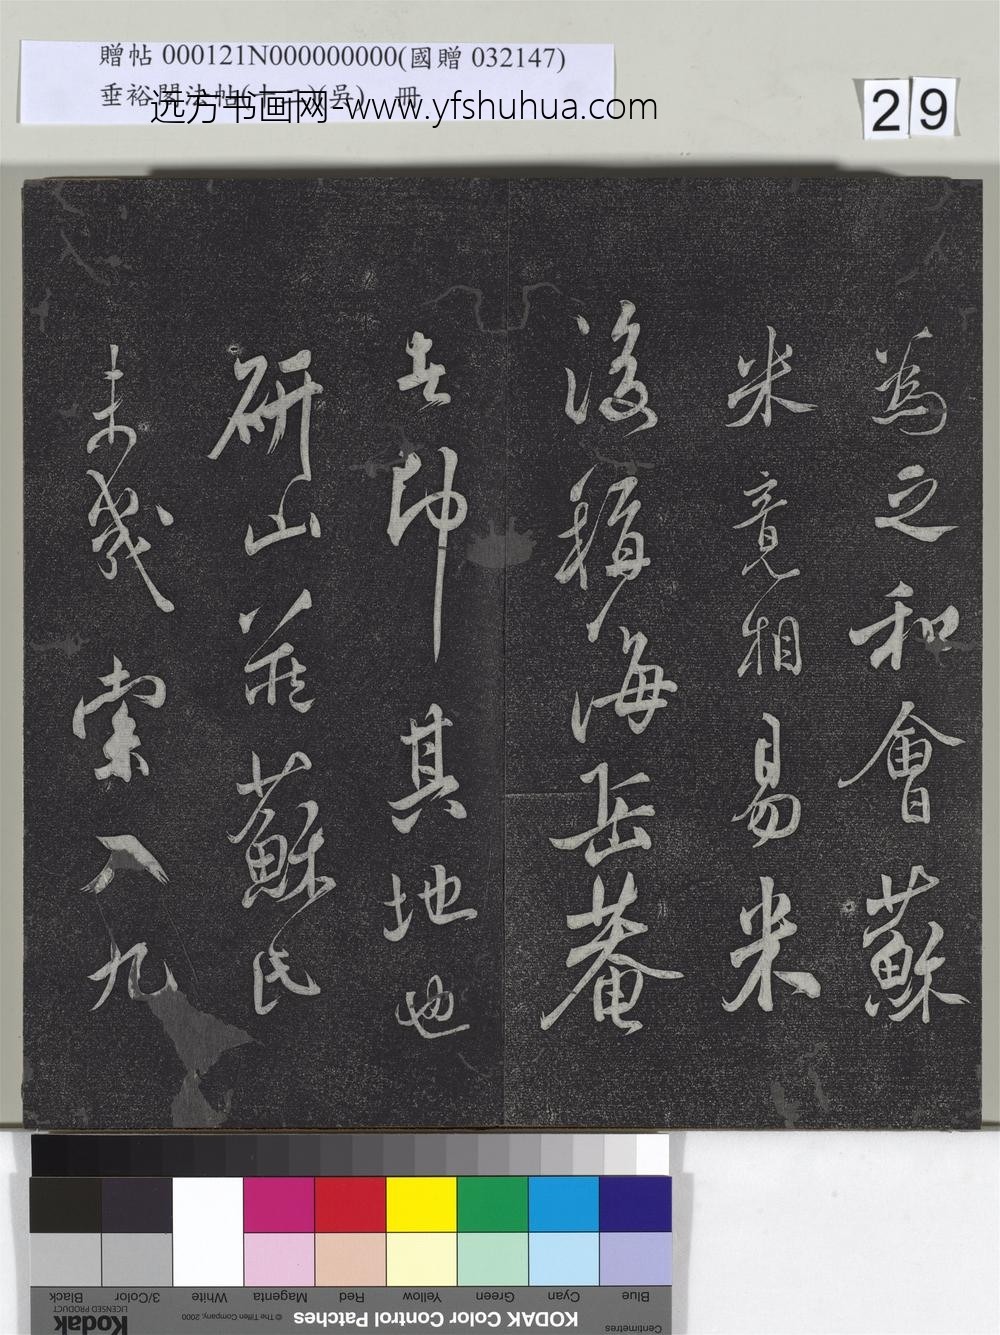 贈帖 000121N000000000(國贈 032147)
垂裕閣法帖 冊
远方书画网-www.yfshuhua.com
29
為之和會蘇
米竟相易米
後稱海岳菴
者即其地也
研山藏蘇氏
未幾索入九
Black
3/Color
White
Magenta
Red
Yellow
Green
Cyan
Blue
Kodak
LICENSED PRODUCT
© The Tiffen Company, 2000
KODAK Color Control Patches
Centimetres